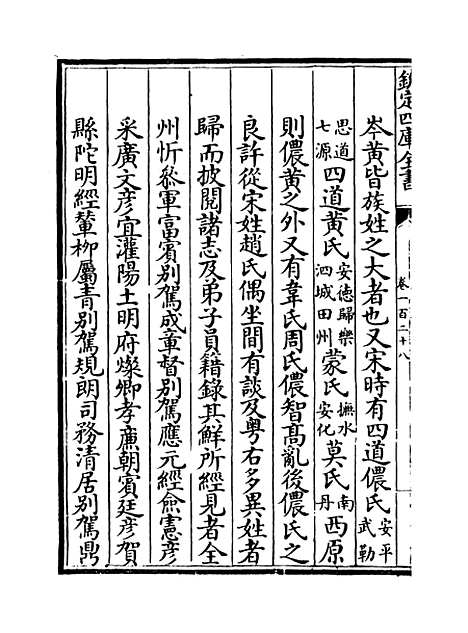 欽定四庫全書
卷一百二十八
岑黃皆族姓之大者也又宋時有四道儂氏安平武勒
思道七源四道黃氏安德歸樂泗城田州蒙氏撫水安化莫氏南丹西原
則儂黃之外又有韋氏周氏儂智高亂後儂氏之
良許從宋姓趙氏偶坐間有談及粵右多異姓者
歸而披閱諸志及弟子員籍錄其鮮所經見者全
州忻叅軍富賓別駕成童督別駕應元經俞憲彦
采廣文彦宜灌陽土明府燦卿孝亷朝賓廷彦賀
縣陀明經輦柳屬青別駕規朗司務清居別駕鼎